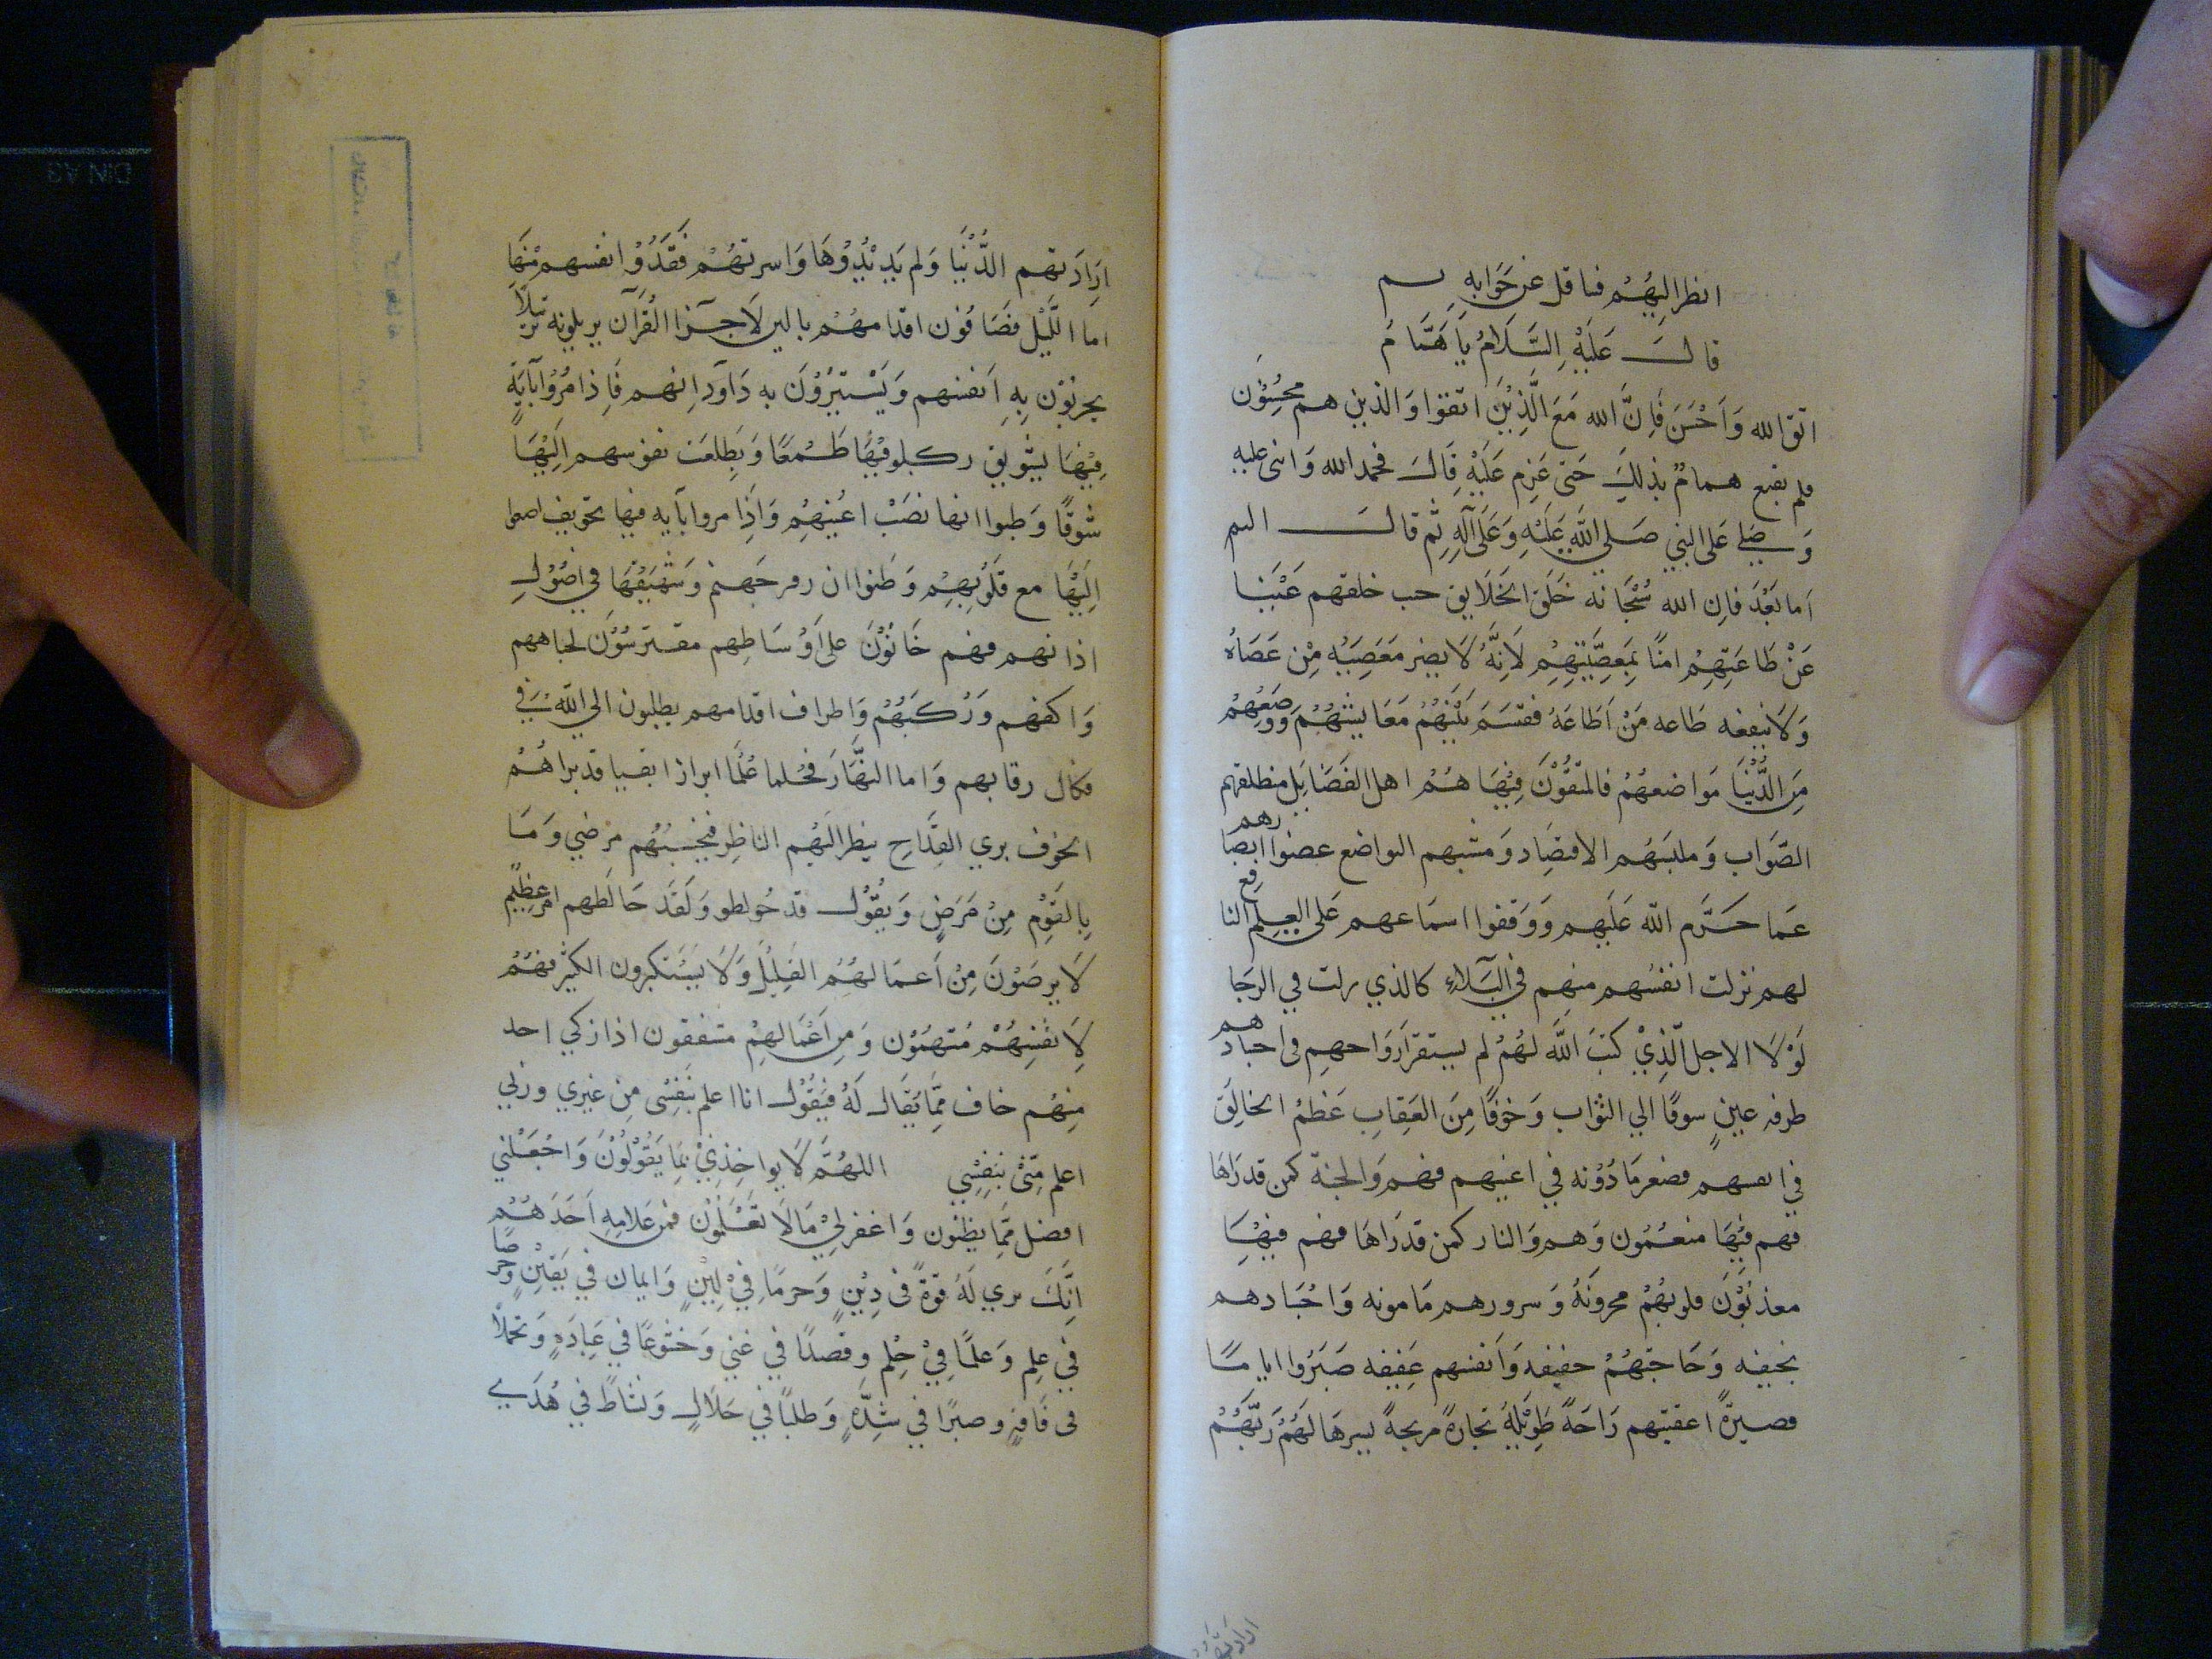 انظر اليَهُمْ فناقل عَن جَوَابِهِ
قالَ عَلَيْهِ السَّلَامُ يَا هَمَّامُ
اتق الله وَاَحْسَنَ فَاِنَّ الله مَعَ الَّذِيْنَ اتقوا وَالذين هم محْسِنُوْنَ
فلم يقنع همامٌ بذلكَ حَتى عَزم عَلَيْهِ قَالَ فحمد الله وَاثنى عليهِ
وَصَلى عَلى النبي صَلي اللَّه عَلَيْهِ وَعَلى آلِهِ ثم قالَ
اَما بَعْدَ فاِن الله سُبْحَانَه خَلَقَ الخَلَايق حب خلقهم غَنيَا
عَنْ طَاعَتِهِمْ امنًا بِمَعصِيَتِهِمْ لَاِنَّهُ لَا يضر مَعَصِيَه مِنْ عَصَاهُ
وَلَا تنفعه طَاعه مَنْ اَطَاعَهُ فقسَمَ بَيْنَهُمْ مَعَايشَهُمْ وَوَضَعَهُمْ
مِنَ الدُّنْيَا مَوَاضعَهُمْ فالمتقُوْنَ فِيْهَا هُمْ اهل الفَضَايَل منطقهم
الصَّوَاب وَملبَسَهُم الاقتصَاد وَمَشيهم التواضع غضوا ابصَارهم
عَما حَرَّم الله عَلَيهم وَوَقفوا اسمَاعهم عَلى العِلم النافع
لهم نزلت انفسُهم منهم فى البَلَاءِ كالذي زلت في الرَجَا
لَوْلَا الاجل الّذِيْ كتبَ اللَّه لهُمْ لم يستقر اَرَوَاحهم فى اجسَادهم
طرفه عينٍ سوقًا الي الثوَاب وَخَوفًا مِنَ العَقِابِ عَظمُ الخالِق
في انفسهم فصغر مَا دُوْنه في اعينهم فهم وَالجنة كمن قد رَاهَا
فهم فيْهَا منعَمُون وَهم وَالنار كمن قد رَاهَا فهم فيهْا
معذبُوْنَ قلوبهُمْ محزونَهُ وَسرورهم مَامونه وَاجْسَادهم
نحيفه وَحَاجتهُمْ خفيفه وَاَنفسهم عَفِيفه صَبَرُوا ايامًا
قصيرةً اعقبتهم رَاحَةً طَويْلَةً تجارةً مربحةً يسرهَا لَهُمْ رَبّهُمْ
اَرَادَتهم
اَرَادَتهم الدُّنْيَا وَلم يَريْدُوْهَا وَاسرتهُمْ فَقَدُوْا انفسهم منْهَا
امَا اللَّيْل فصَافوْن اقدامهُمْ تالين لَاجزا القُرآن يرتلونه ترتيلًا
يحزنوْن بِهِ اَنفسهم وَيَسْتثيرُوْن به دَاوَدائهم فَاِذا مُرّوْا بآيةٍ
فِيْهَا تشويق ركبلوفيْهَا طَمْعًا وَتطلعَت نفوسهم اِلَيْهَا
شوقًا وَظنوا انها نصَبْ اعُينهُم وَاَذِا مروا بآيه فيها تخويف اصغوا
اِلَيْهَا مع قلوبهِم وَظنوا ان زفر جَهنم وَشهيْقهَا في اُصُوْلِ
اذانهم فهم حَانوْنَ على اَوْسَاطِهم مفترسوْنَ لجباههم
وَاكفهم وَرُكَبهُمْ وَاطراف اقدامهم يطلبون الي اللّه في
فكاك رقابهم وَاما النهَّارَ فحُلما عُلَما ابرار اتقيا قد براهُمْ
الخوف بري القدَاحِ ينظر اليَهُم الناظِر فيحسبُهُم مرضي وَمَا
بِالقَوِمُ مِنْ مَرَضٍ وَيقوُل قد خُولطو وَلقَد خالطهم امر عَظِيْم
لَا يرضوْنَ مِنْ اَعمَالهُم القَلِيْلَ وَلَا يَسْتكبرون الكثير فهُمْ
لِانفسِهُمْ مُتهمُوْن وَمِن اَعْمَالهمُ مشفقون اذا زكي احد
منِهُم خاف ممّا يَقَال لَهُ فيَقُوْل انا اعلم بنَفِسْى مِن غيري وربي
اعلم مِنّىْ بنفِسْي اللهُمَّ لَا تواخِذنِيْ بَمَا يَقُوْلُوْنَ وَاجْعَلني
افضل ممَّا يظنون وَاغفر ليْ مَا لَا تعَلمَوْن فمن عَلامِه اَحَدهُمْ
اَنِّكَ تري لَهُ قوّةً فى دِيْنٍ وَحزمًا فيْ لِيْنٍ وَايمان في يَقِيْنٍ وَحرصًا
في علِم وَعلمًا فيْ حِلم وقصدًا في غني وَخشوعًا في عِبادَةٍ وَتحملًا
فى فَاقةٍ وصبرًا في شِدّةٍ وَطلبًا في حَلَالٍ وَنشاطً في هُدَي
DIN A3